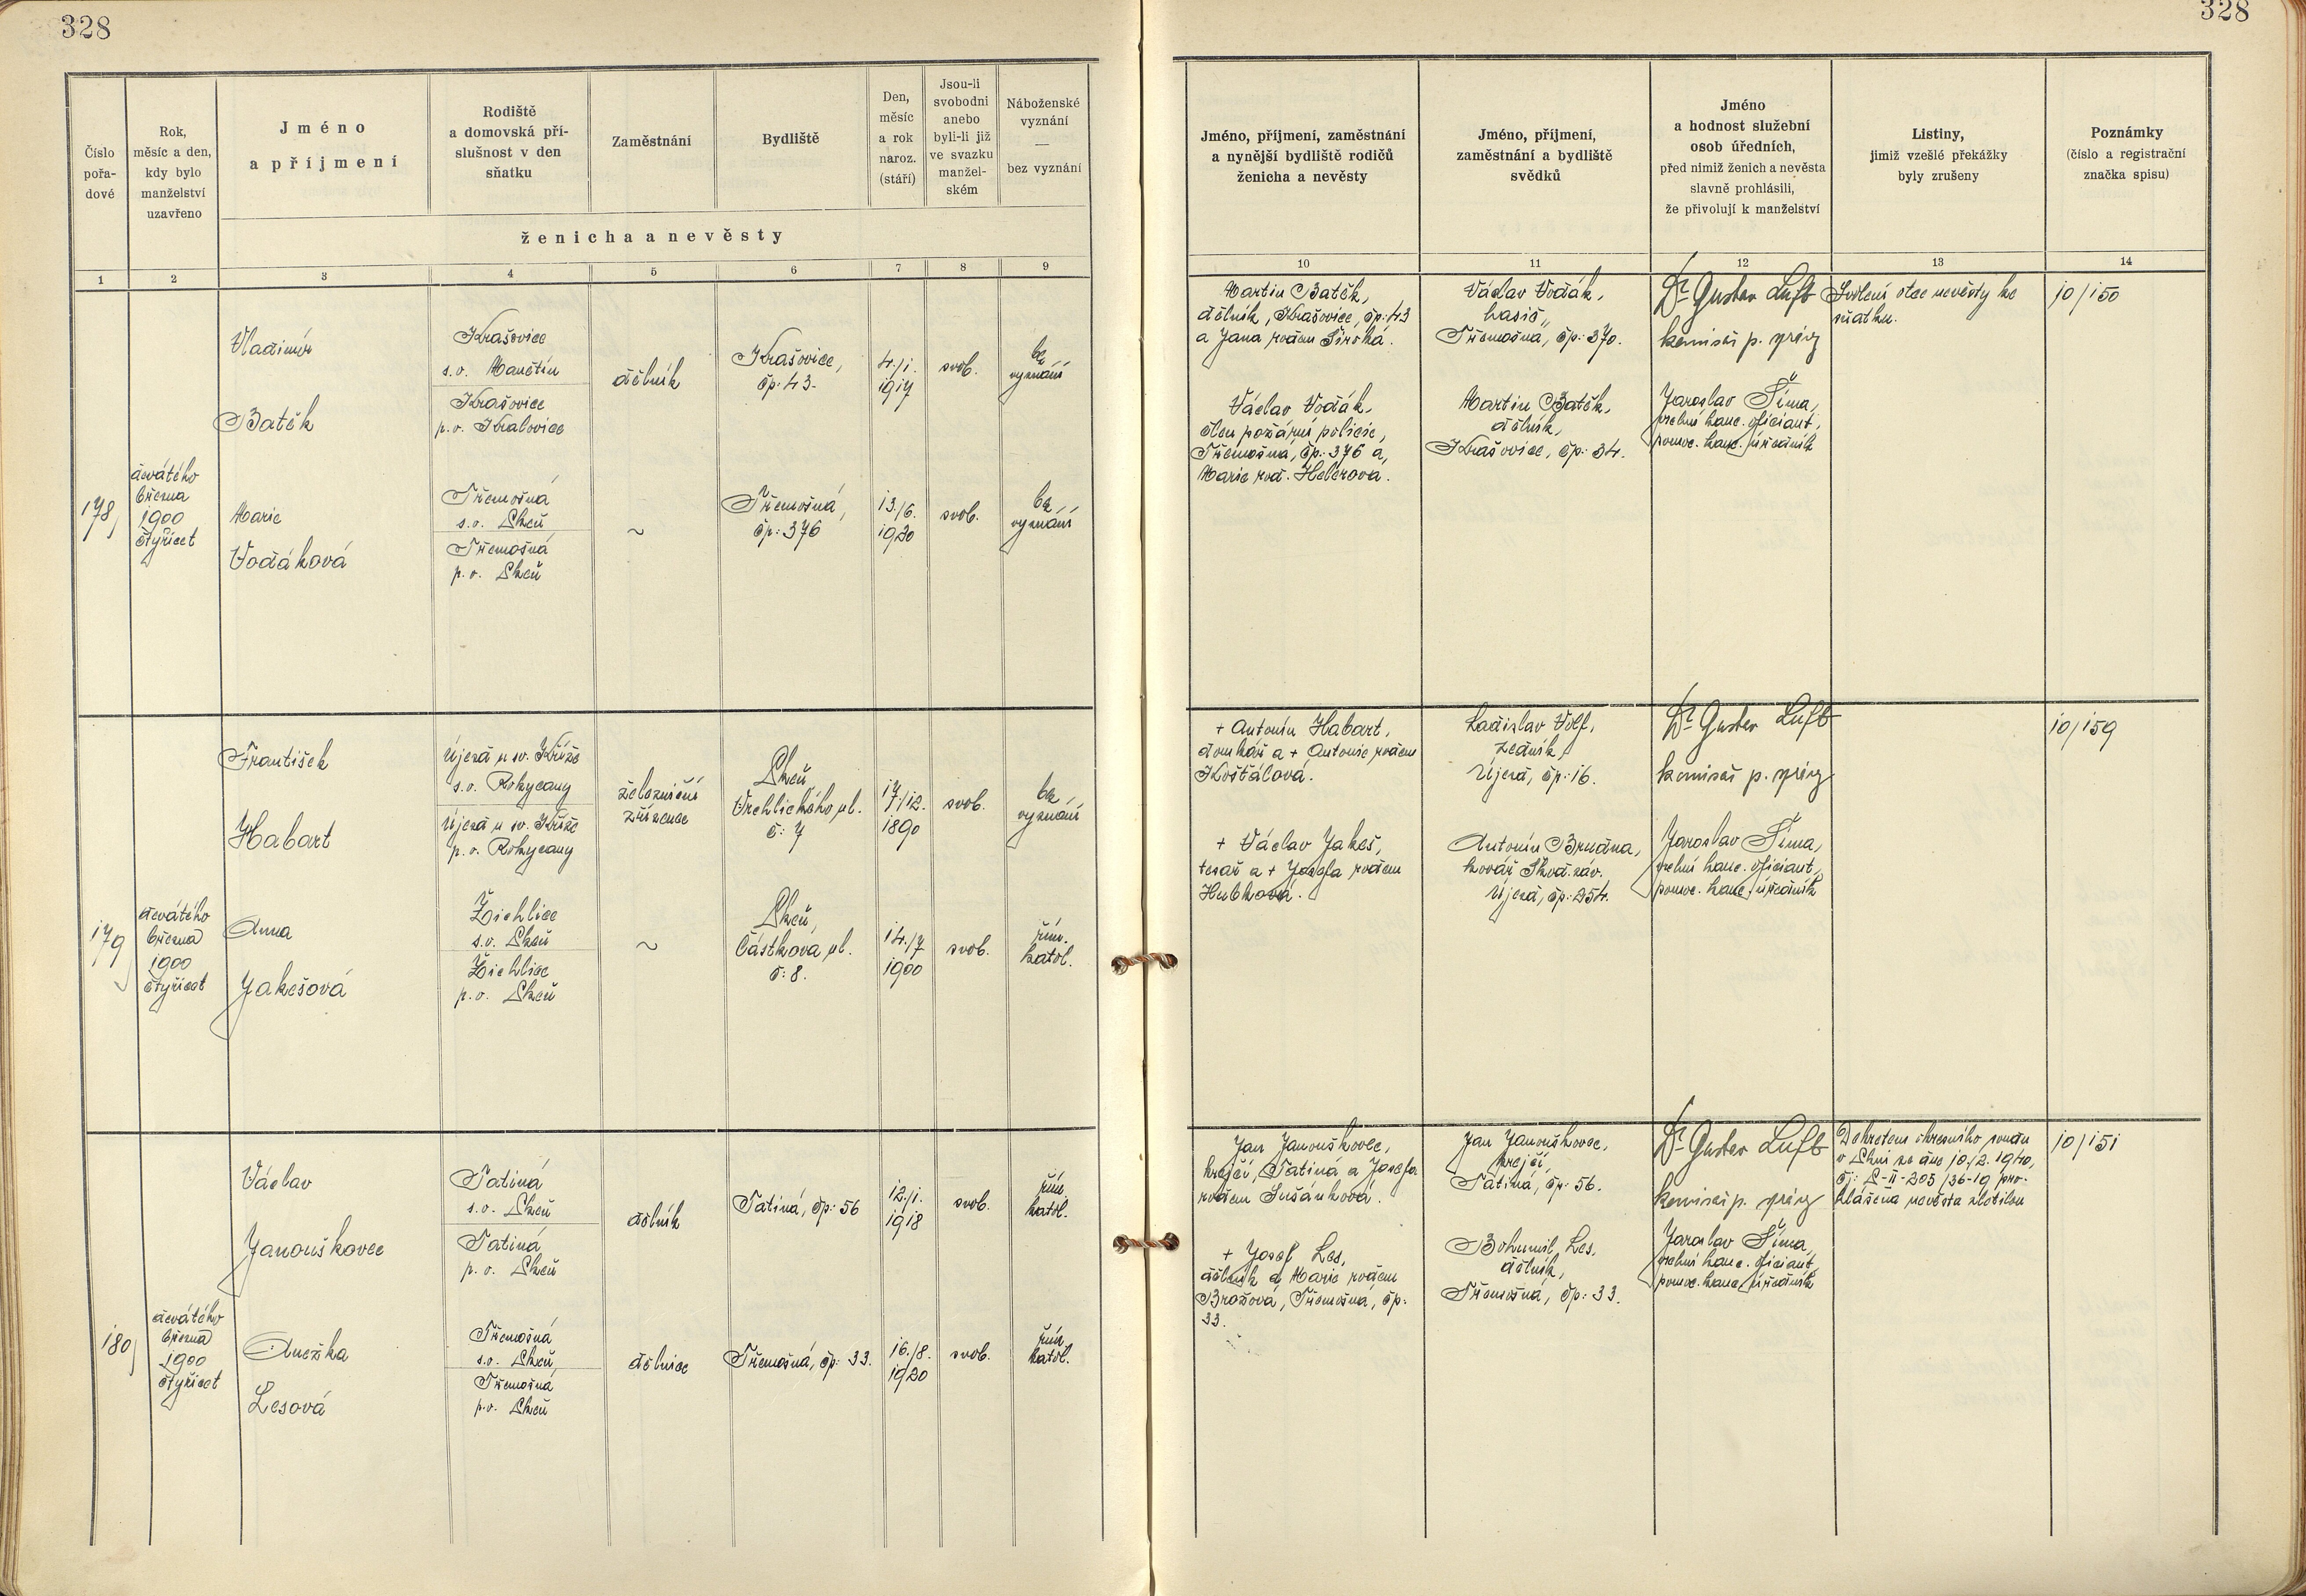 328
328
Číslo
pořa-
dové
Rok,
měsíc a den,
kdy bylo
manželství
uzavřeno
Jméno
a příjmení
Rodiště
a domovská pří-
slušnost v den
sňatku
Zaměstnání
Bydliště
Den,
měsíc
a rok
naroz.
(stáří)
Jsou-li
svobodni
anebo
byli-li již
ve svazku
manžel-
ském
Náboženské
vyznání
—
bez vyznání
ženicha a nevěsty
Jméno, příjmení, zaměstnání
a nynější bydliště rodičů
ženicha a nevěsty
Jméno, příjmení,
zaměstnání a bydliště
svědků
Jméno
a hodnost služební
osob úředních,
před nimiž ženich a nevěsta
slavně prohlásili,
že přivolují k manželství
Listiny,
jimiž vzešlé překážky
byly zrušeny
Poznámky
(číslo a registrační
značka spisu)
1 2 3 4 5 6 7 8 9 10 11 12 13 14
178
devátého
března
1900
čtyřicet
Vladimír
Batěk
Krašovice
s.o. Manětín
Krašovice
p.o. Kralovice
dělník
Krašovice,
čp: 43.
4./1.
1917
svob.
bez
vyznání
Marie
Vodáková
Třemošná
s.o. Plzeň
Třemošná
p.o. Plzeň
~
Třemošná,
čp: 376
13./6.
1920
svob.
bez
vyznání
Martin Batěk,
dělník, Krašovice, čp: 43
a Jana rodem Široká.
Václav Vodák,
člen požární policie,
Třemošná, čp: 376 a
Marie rod. Helerova.
Václav Vodák,
hasič,
Třemošná, čp: 370.
Martin Batěk,
dělník,
Krašovice, čp: 34.
Dr Gustav Luft
komisař p. správy
Jaroslav Šíma,
kanc. oficiant,
pomoc. kanc. úředník
Svolení otce nevěsty ke
sňatku.
10/150
179
devátého
března
1900
čtyřicet
František
Habart
Újezd u sv. Kříže
s.o. Rokycany
Újezd u sv. Kříže
p.o. Rokycany
železniční
zřízenec
Plzeň,
Vrchlického ul.
č: 7
17./12.
1890
svob.
bez
vyznání
Anna
Jakešová
Žichlice
s.o. Plzeň
Žichlice
p.o. Plzeň
~
Plzeň,
Částkova ul.
č: 8.
14./7
1900
svob.
řím.
katol.
+ Antonín Habart,
domkář a + Antonie rodem
Košťálová.
+ Václav Jakeš,
tesař a + Josefa rodem
Hubková.
Ladislav Volf,
zedník,
Újezd, čp: 16.
Antonín Brudna,
kovář Škod. záv.
Újezd, čp: 254.
Dr Gustav Luft
komisař p. správy
Jaroslav Šíma,
kanc. oficiant,
pomoc. kanc. úředník
10/159
180
devátého
března
1900
čtyřicet
Václav
Janouškovec
Tatiná
s.o. Plzeň
Tatiná
p.o. Plzeň
dělník
Tatiná, čp: 56
12./1.
1918
svob.
řím.
katol.
Anežka
Lesová
Třemošná
s.o. Plzeň
Třemošná
p.o. Plzeň
dělnice
Třemošná, čp: 33.
16./8.
1920
svob.
řím.
katol.
Jan Janouškovec,
krejčí, Tatiná a Josefa
rodem Sušánková.
+ Josef Les,
dělník a Marie rodem
Brožová, Třemošná, čp:
33.
Jan Janouškovec,
krejčí,
Tatiná, čp: 56.
Bohumil Les,
dělník,
Třemošná, čp: 33.
Dr Gustav Luft
komisař p. správy
Jaroslav Šíma,
kanc. oficiant,
pomoc. kanc. úředník
Dekretem okresního soudu
v Plzni ze dne 10./2. 1940,
čj: P-II-205/36-19 pro-
hlášena nevěsta zletilou
10/151